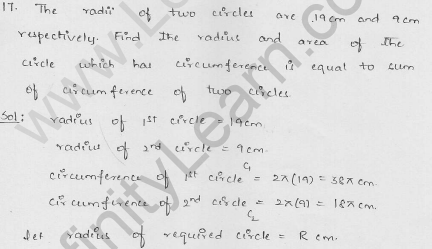 17. The radii of two circles are 19cm and 9cm
respectively. Find the radius and area of the
circle which has circumference is equal to sum
of circumference of two circles.
Sol: radius of 1st circle = 19cm.
radius of 2nd circle = 9cm.
circumference of 1st circle C₁ = 2π(19) = 38π cm.
circumference of 2nd circle C₂ = 2π(9) = 18π cm.
let radius of required circle = R cm.
finityLearn.com